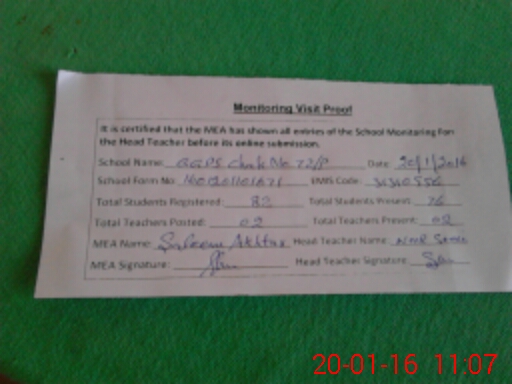 Monitoring Visit Proof
It is certified that the MEA has shown all entries of the School Monitoring Form
the Head Teacher before its online submission.
School Name: GGPS Chak No 72/P Date 20/1/2016
School Form No EMIS Code:
Total Students Registered: 82 Total Students Present 76
Total Teachers Posted: 02 Total Teachers Present: 02
MEA Name: Saleem Akhtar Head Teacher Name:
MEA Signature: Head Teacher Signature
20-01-16 11:07